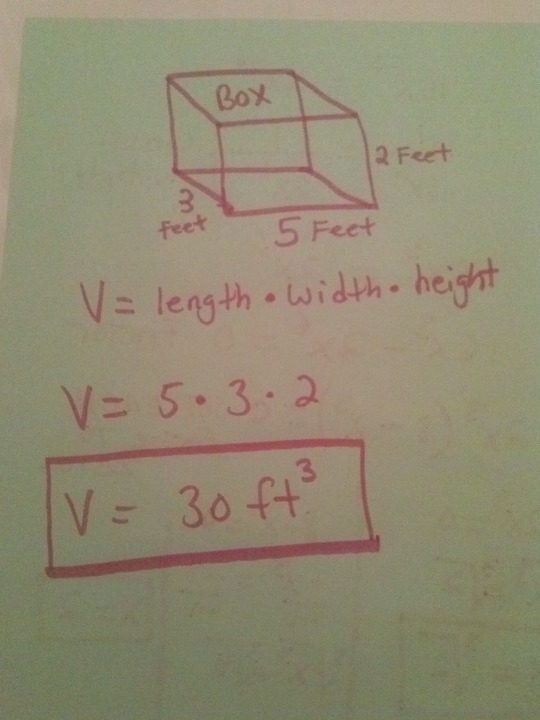 BOX
2 Feet
3
Feet
5 Feet
V = length • width • height
V = 5 • 3 • 2
V = 30 ft³